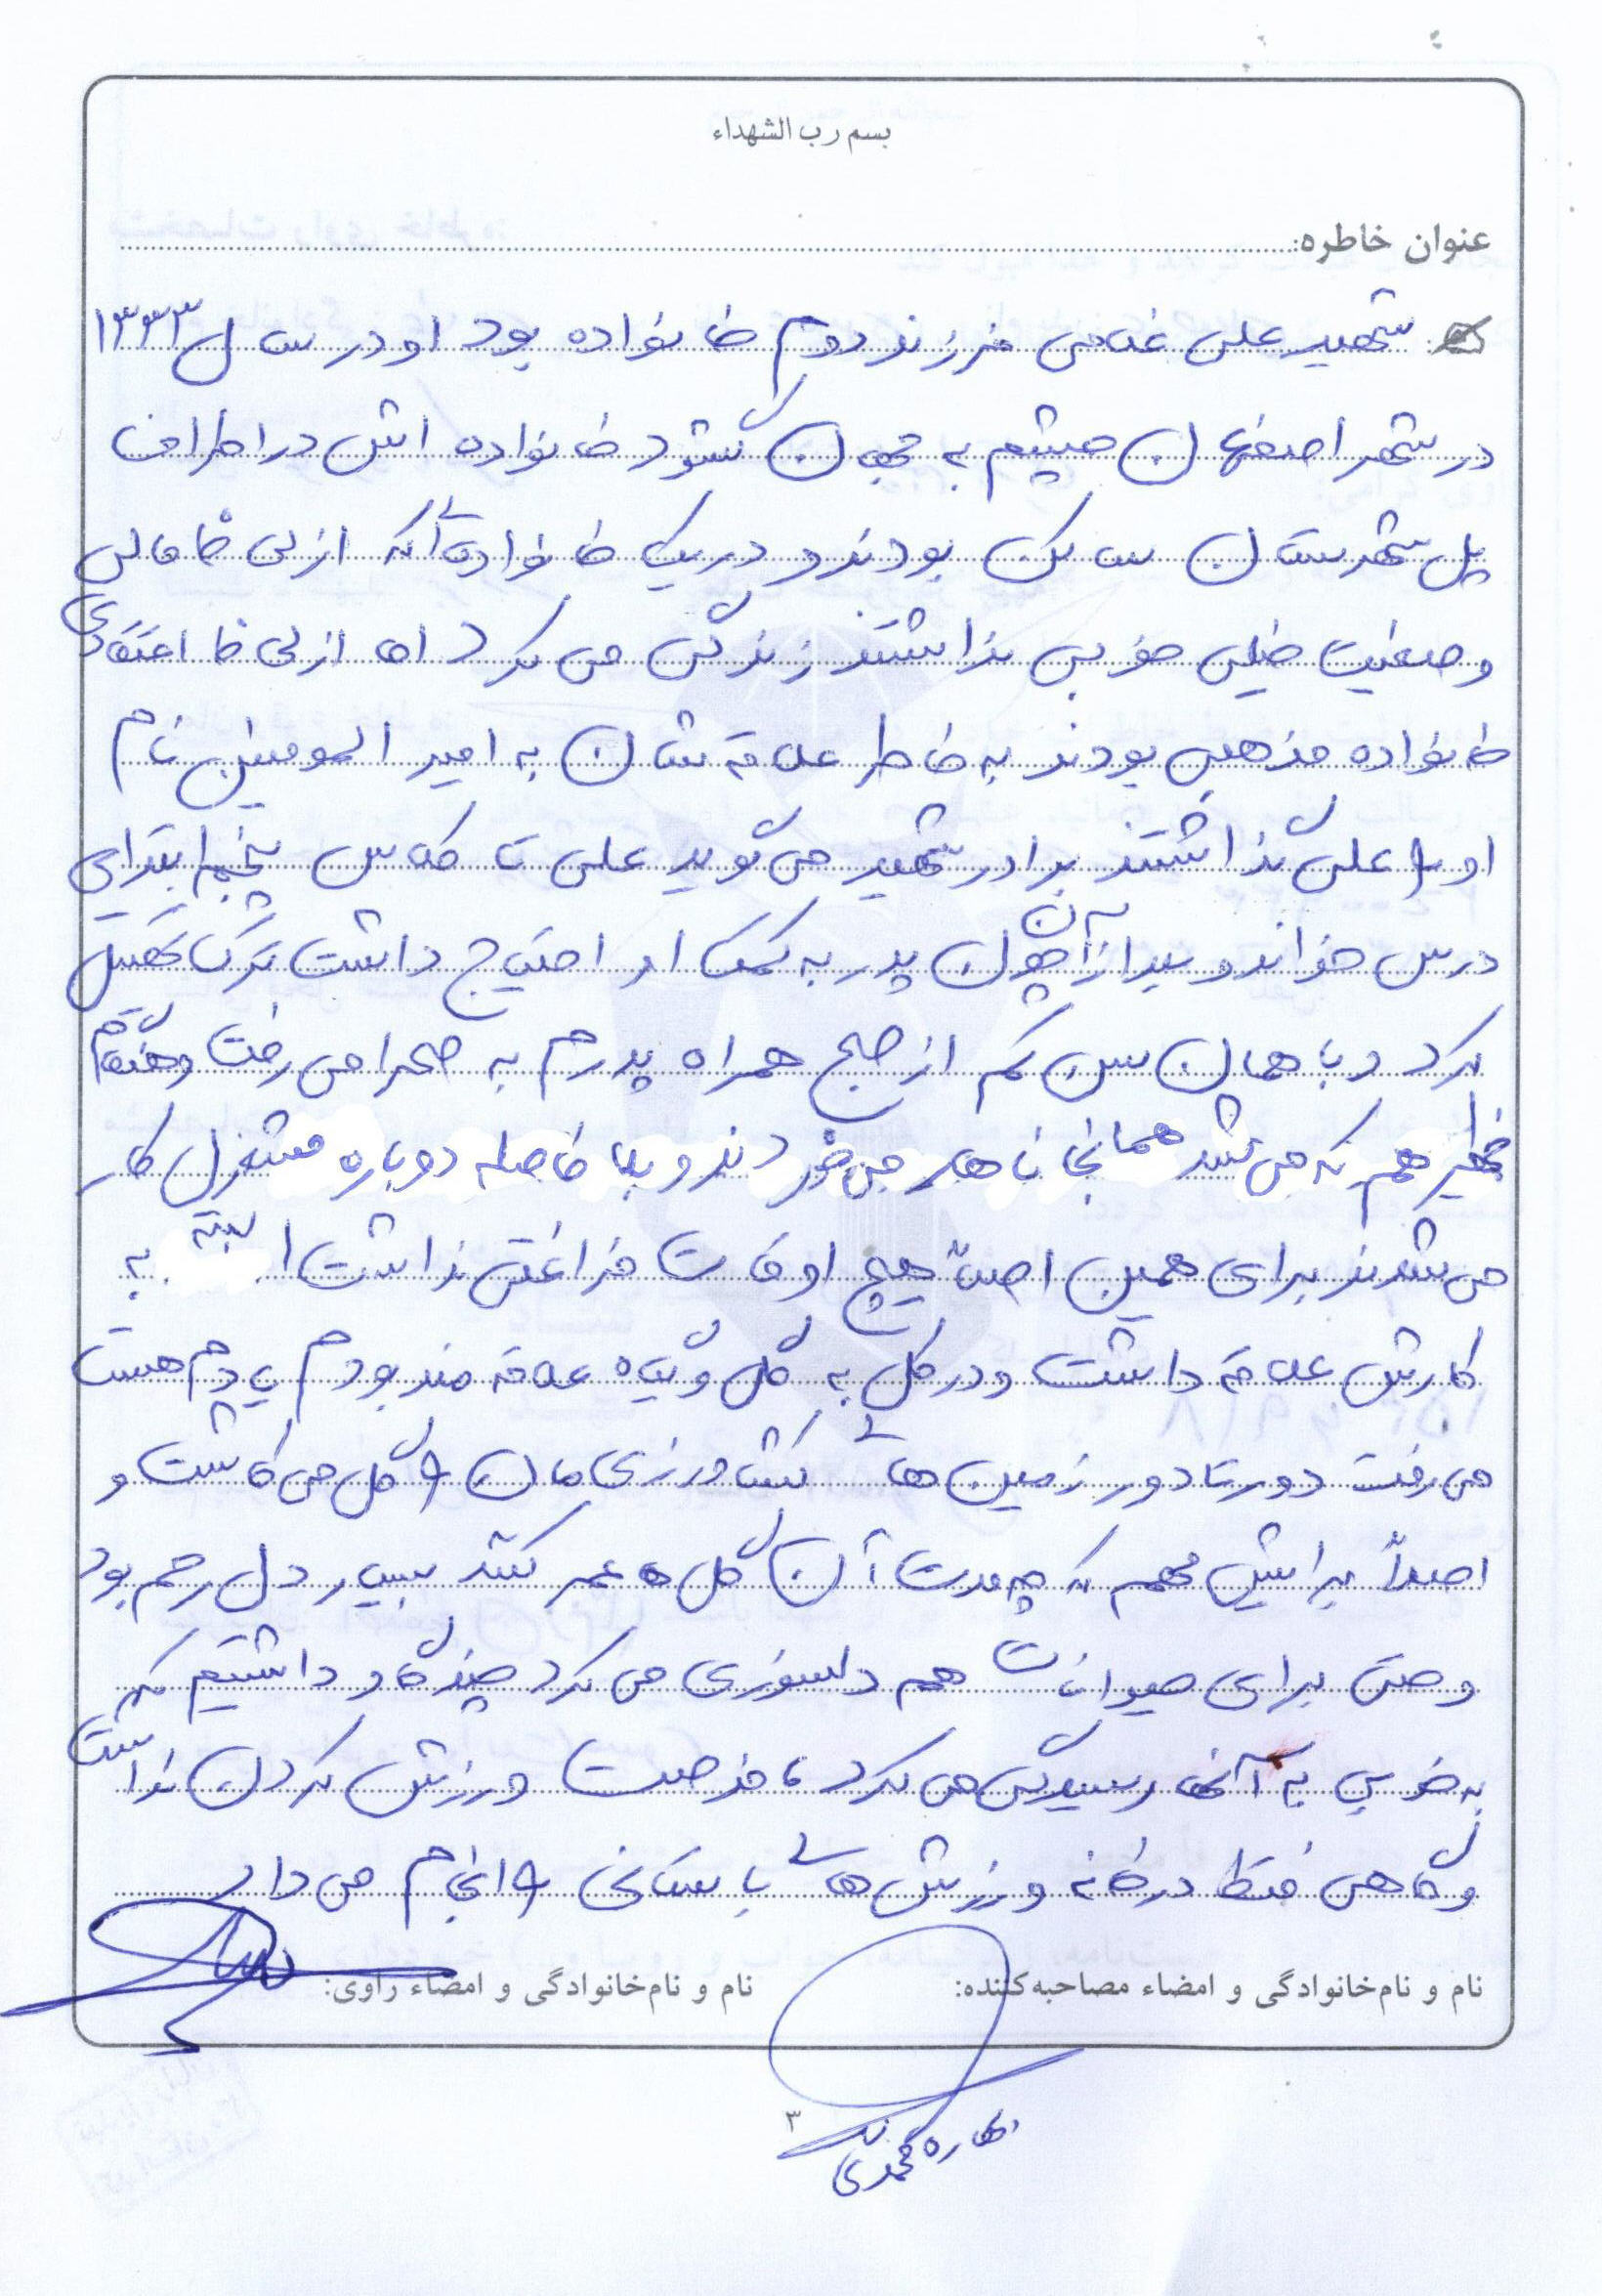 بسم رب الشهداء
عنوان خاطره:
شهید علی غلامی فرزند دوم خانواده بود او در سال ۱۳۳۳
در شهر اصفهان چشم به جهان گشود خانواده اش در اطراف
پل شهرستان ساکن بودند و در یک خانواده‌ای که از لحاظ مالی
وضعیت خیلی خوبی نداشتند زندگی می کرد اما از لحاظ اعتقادی
خانواده مذهبی بودند به خاطر علاقه شان به امیر المومنین نام
او را علی گذاشتند برادر شهید می گوید علی تا کلاس پنجم ابتدایی
درس خواند و بعد از آن چون پدر به کمک او احتیاج داشت ترک تحصیل
کرد و با همان سن کم از صبح همراه پدرم به صحرا می رفت و هنگام
ظهر هم که می شد همانجا ناهار می خوردند و بلا فاصله دوباره مشغول کار
می شدند برای همین اصلاً هیچ اوقات فراغتی نداشت البته به
کارش علاقه داشت و در کل به گل و گیاه علاقه مند بودم یادم هست
می رفت دور تا دور زمین های کشاورزی مان را گل می کاشت و
اصلاً برایش مهم که چه مدت آن گل ها عمر کند بسیار دل رحم بود
و حتی برای حیوانات هم دلسوزی می کرد چند گاو داشتیم که
به خوبی به آنها رسیدگی می کرد، فرصت ورزش کردن نداشت
و گاهی فقط در خانه ورزش های باستانی را انجام می داد
نام و نام‌خانوادگی و امضاء مصاحبه‌کننده:
نام و نام‌خانوادگی و امضاء راوی:
۳
محمدی